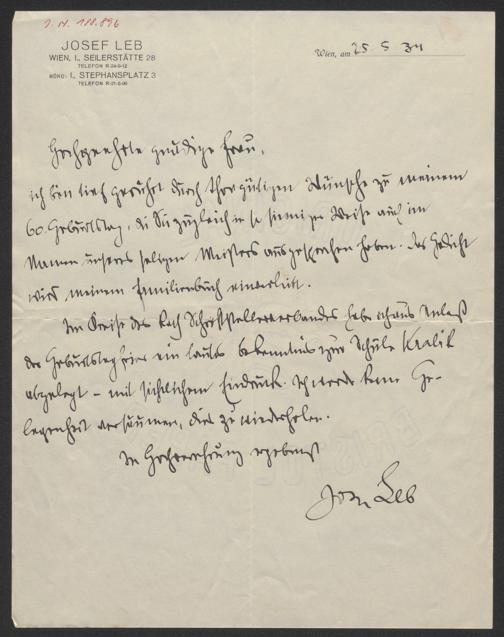 J. N. 188.896
JOSEF LEB
WIEN, I., SEILERSTÄTTE 28
TELEFON R-24-9-12
BÜRO: I., STEPHANSPLATZ 3
Wien, am 25 5 34
Hochgeehrte gnädige Frau,
ich bin tief gerührt durch Ihre gütigen Wünsche zu meinem
60. Geburtstag, die Sie zugleich in so sinniger Weise auch im
Namen unseres seligen Meisters ausgesprochen haben. Das Gedicht
wird meinem Familienbuch einverleibt.
Im Kreise des Kath Schriftstellerverbandes habe ich aus Anlaß
der Geburtstagfeier ein lautes Bekenntnis zur Schule Kralik
abgelegt – mit sichtlichem Eindruck. Ich werde keine Ge-
legenheit versäumen, dies zu wiederholen.
In Hochverehrung ergebenst
Josef Leb